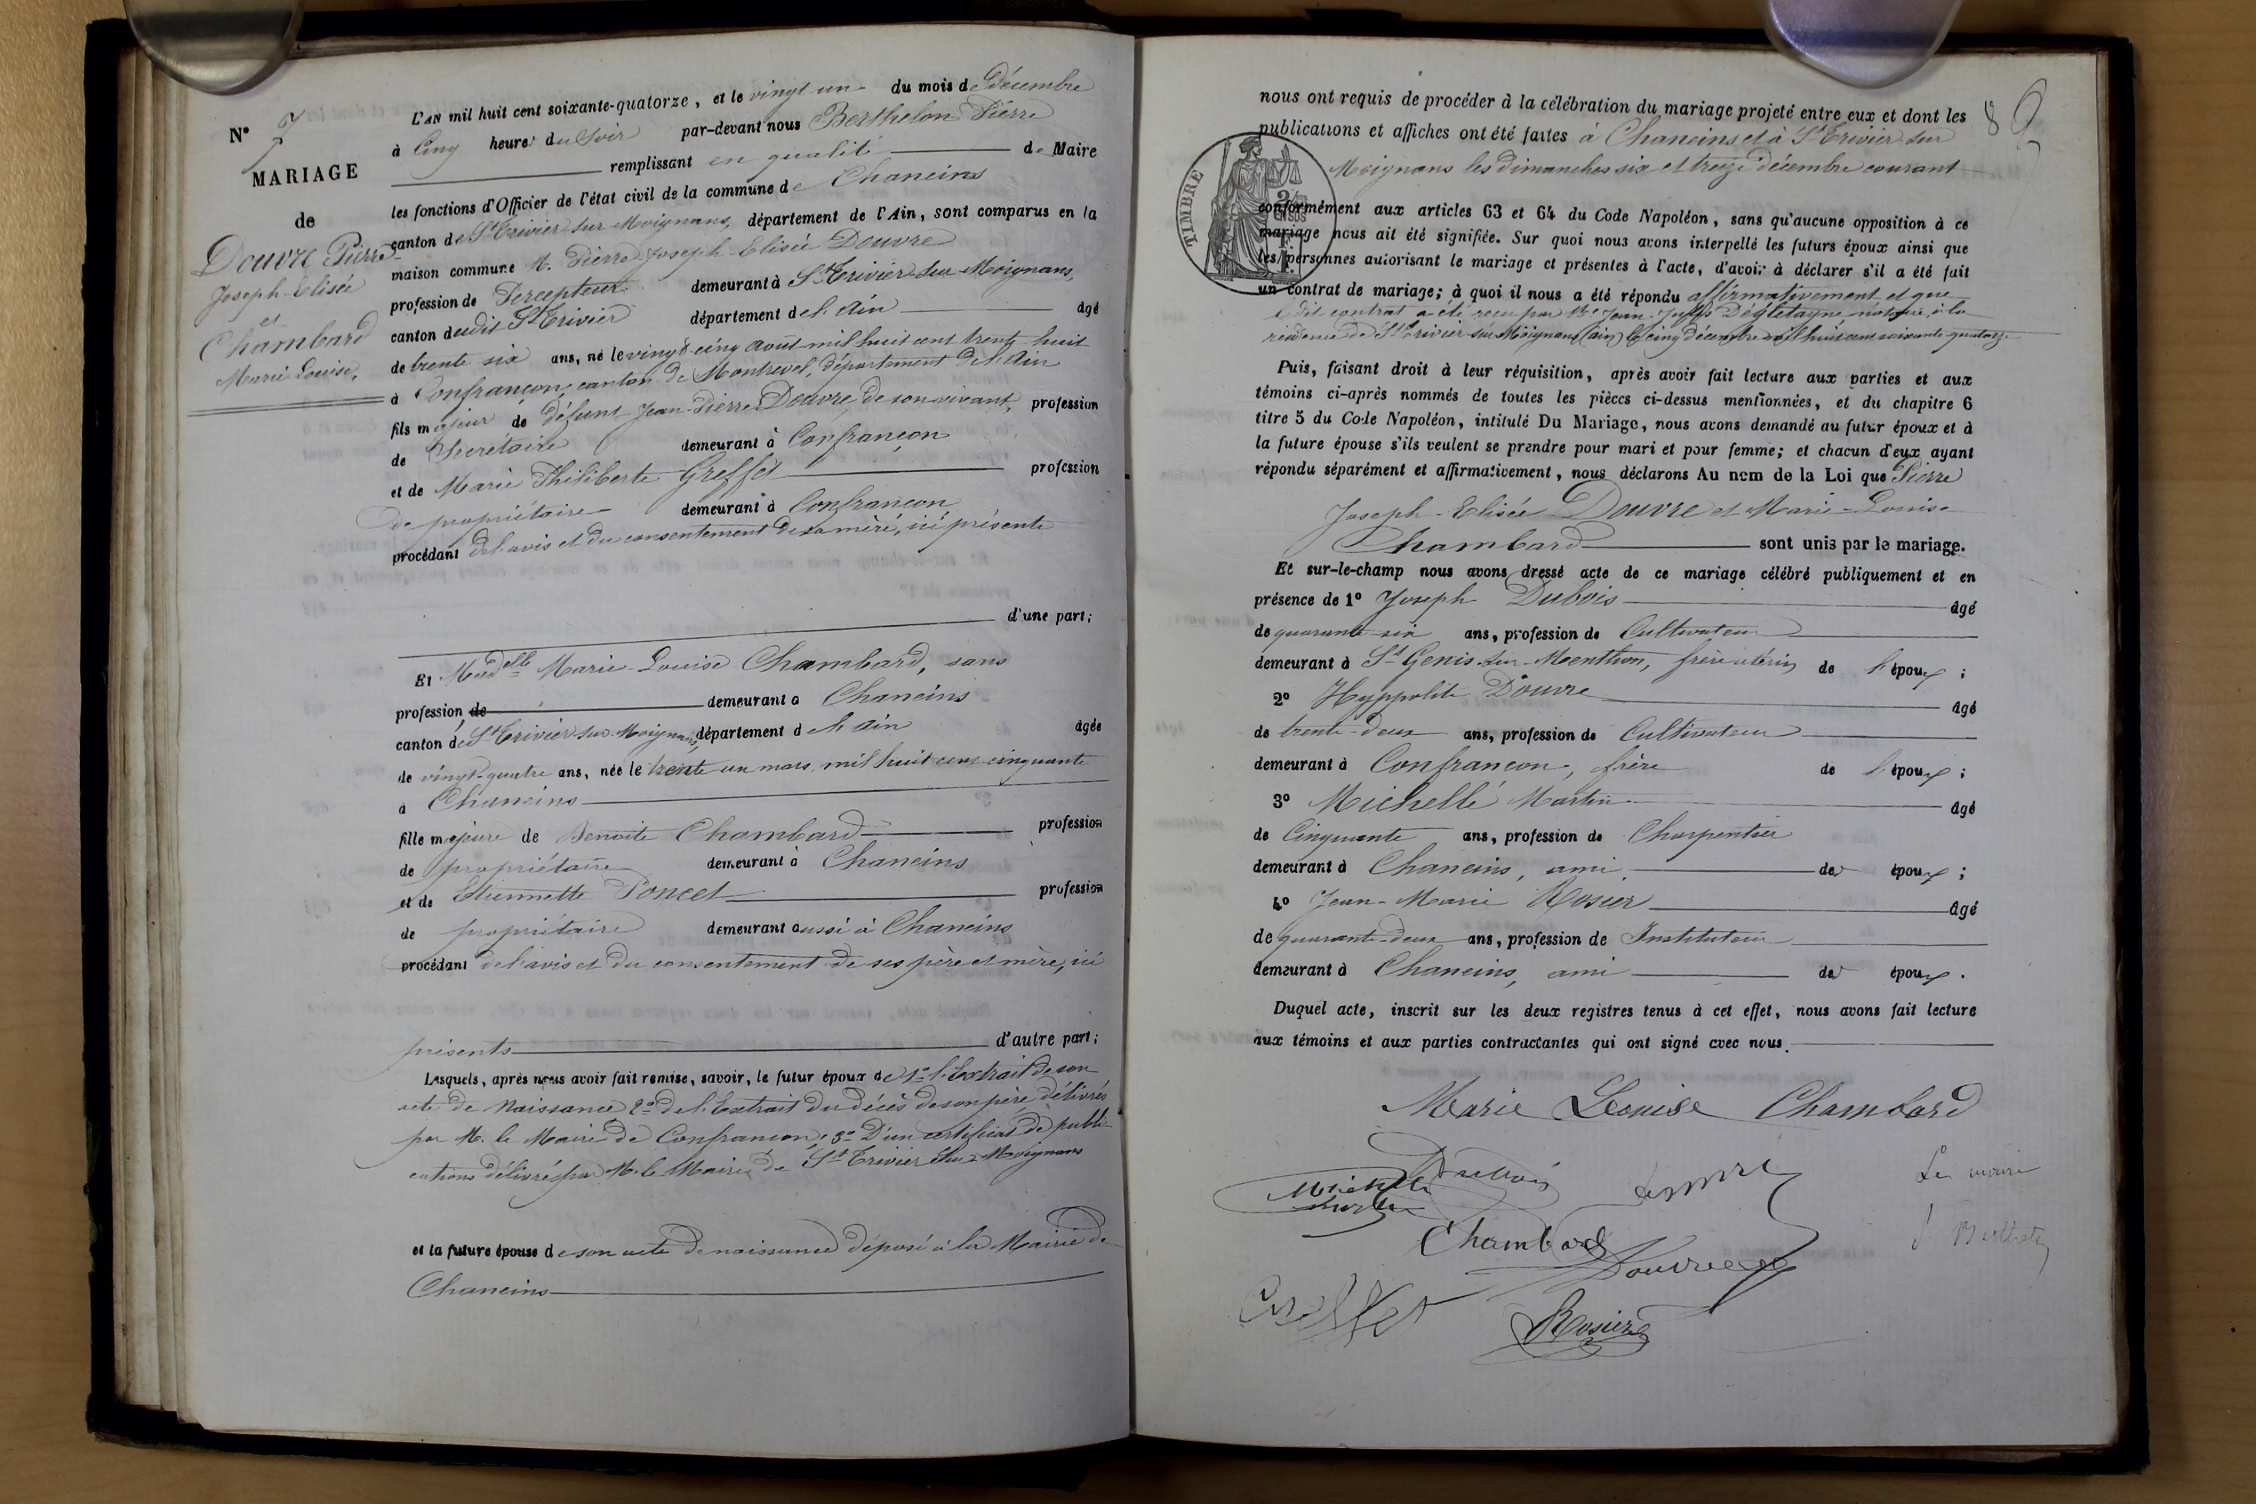 N° 7
MARIAGE
de
Douvre Pierre-
Joseph-Elisée
et
Chambard
Marie Louise,
L'AN mil huit cent soixante-quatorze, et le vingt-un du mois de Décembre
à Cinq heures du Soir par-devant nous Berthelon Pierre
remplissant en qualité de Maire
les fonctions d'Officier de l'état civil de la commune de Chaneins
canton de St Trivier sur Moignans, département de l'Ain, sont comparus en la
maison commune M. Pierre-Joseph-Elisée Douvre
profession de Percepteur demeurant à St Trivier sur Moignans,
canton dudit St Trivier département de l'Ain âgé
de trente six ans, né le vingt cinq aout mil huit cent trente huit
à Confrançon, canton de Montrevel, département de l'Ain
fils majeur de défunt Jean-Pierre Douvre, de son vivant, profession
de Secrétaire demeurant à Confrançon
et de Marie Philiberte Greffet profession
de propriétaire demeurant à Confrancon
procédant de l'avis et du consentement de sa mère, ici présente
d'une part;
Et Madelle Marie-Louise Chambard, sans
profession de demeurant à Chaneins
canton de St Trivier sur Moignans, département de l'Ain âgée
de vingt-quatre ans, née le trente un mars mil huit cent cinquante
à Chaneins
fille majeure de Benoite Chambard profession
de propriétaire demeurant à Chaneins
et de Etiennette Poncet profession
de propriétaire demeurant aussi à Chaneins
procédant de l'avis et du consentement de ses père et mère, ici
présents d'autre part;
Lesquels, après nous avoir fait remise, savoir, le futur époux de 1° l'Extrait de son
acte de Naissance 2° de l'Extrait du décès de son père délivrés
par M. le Maire de Confrancon, 3° D'un certificat de publi-
cations délivré par M. le Maire de St Trivier sur Moignans
et la future épouse de son acte de naissance déposé à la Mairie de
Chaneins
8
nous ont requis de procéder à la célébration du mariage projeté entre eux et dont les
publications et affiches ont été faites à Chaneins et à St Trivier sur
Moignans les dimanches six et treize décembre courant
TIMBRE
conformément aux articles 63 et 64 du Code Napoléon, sans qu'aucune opposition à ce
mariage nous ait été signifiée. Sur quoi nous avons interpellé les futurs époux ainsi que
les personnes autorisant le mariage et présentes à l'acte, d'avoir à déclarer s'il a été fait
un contrat de mariage; à quoi il nous a été répondu affirmativement et que
ledit contrat a été recu par Me Jean notaire à la
résidence de St Trivier sur Moignans (ain) le cinq décembre mil huit cent soixante quatorze
Puis, faisant droit à leur réquisition, après avoir fait lecture aux parties et aux
témoins ci-après nommés de toutes les pièces ci-dessus mentionnées, et du chapitre 6
titre 5 du Code Napoléon, intitulé Du Mariage, nous avons demandé au futur époux et à
la future épouse s'ils veulent se prendre pour mari et pour femme; et chacun d'eux ayant
répondu séparément et affirmativement, nous déclarons Au nom de la Loi que Pierre
Joseph-Elisée Douvre et Marie-Louise
Chambard sont unis par le mariage.
Et sur-le-champ nous avons dressé acte de ce mariage célébré publiquement et en
présence de 1° Joseph Dubois âgé
de quarante-six ans, profession de Cultivateur
demeurant à St Genis-sur-Menthon, frère utérin de l'époux;
2° Hyppolite Douvre âgé
de trente-deux ans, profession de Cultivateur
demeurant à Confrancon, frère de l'époux;
3° Michellé Martin âgé
de Cinquante ans, profession de Charpentier
demeurant à Chaneins, ami des époux;
4° Jean-Marie Rosier âgé
de quarante-deux ans, profession de Instituteur
demeurant à Chaneins, ami des époux.
Duquel acte, inscrit sur les deux registres tenus à cet effet, nous avons fait lecture
aux témoins et aux parties contractantes qui ont signé avec nous.
Marie Louise Chambard
Dubois
Douvre
Le maire
Michellé
Martin
Chambard
Douvre
Greffet
Rosier